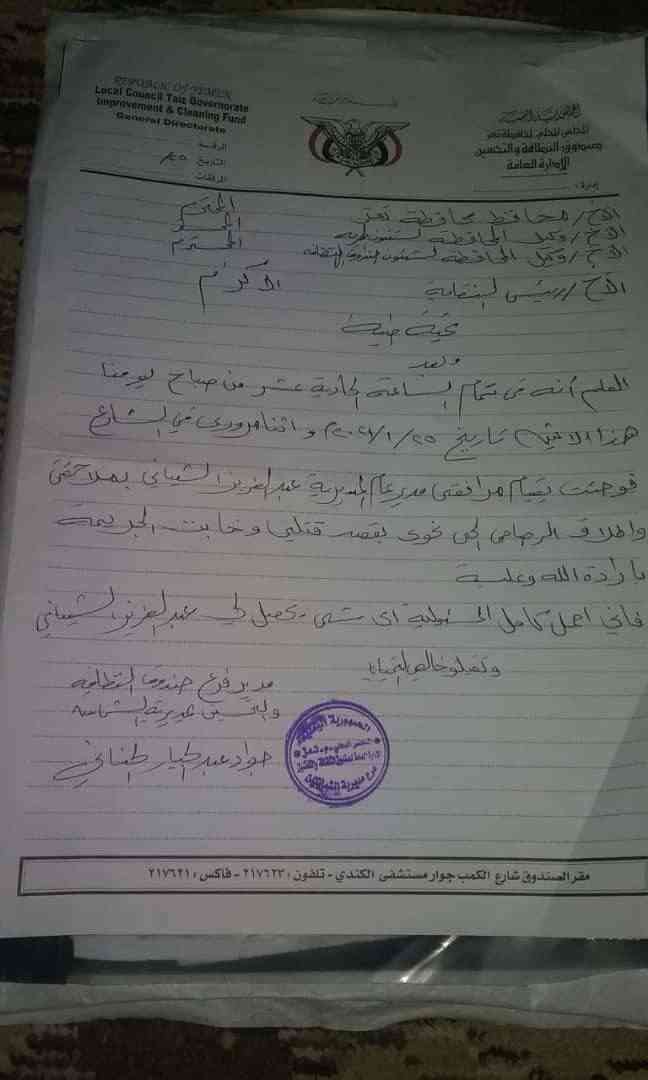 REPUBLIC OF YEMEN
Local Council Taiz Governorate
Improvement & Cleaning Fund
General Directorate
الجمهورية اليمنية
المجلس المحلي لمحافظة تعز
صندوق النظافة والتحسين
الإدارة العامة
إدارة :
الرقم :
التاريخ :
المرفقات :
الأخ / محافظ محافظة تعز المحترم
الأخ / وكيل المحافظة
الأخ / وكيل المحافظة لشئون المحترم
الأخ / رئيس النقابة الأكرام
تحية طيبة
وبعد
العلم أنه في تمام الساعة الحادية عشر من صباح يومنا
هذا الاثنين تاريخ ٢٠٢١/١/٢٥م واثنا مروري في الشارع
فوجئت بقيام مرافقي مدير عام المديرية عبدالعزيز الشيباني بملاحقتي
واطلاق الرصاص الحي نحوي بقصد قتلي وخابت الجريمة
بارادة الله وعلية
فاني احمل كامل المسئولية اي شي يحصل لي عبدالعزيز الشيباني
وتقبلو خالص التحيات
مدير فرع صندوق النظافة
والتحسين مديرية الشمايتين
جواد عبدالجبار
الجمهورية اليمنية
فرع مديرية الشمايتين
مقر الصندوق شارع الكمب جوار مستشفى الكندي - تلفون : ٢١٧٦٢٣ - فاكس : ٢١٧٦٢١